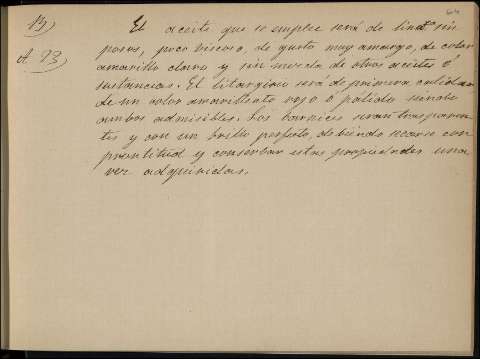 B)
A. 93)
64
El aceite que se emplee será de linaza sin
posos, poco viscoso, de gusto muy amargo, de color
amarillo claro y sin mezcla de otros aceites ó
sustancias. El litargirio será de primera calidad
de un color amarillento rojo ó pálido siendo
ambos admisibles. Los barnices serán trasparen-
tes y con un brillo perfecto, debiendo secarse con
prontitud y conservar estas propiedades una
vez adquiridas.